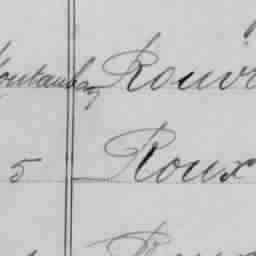 Montauban Rouv
5 Roux